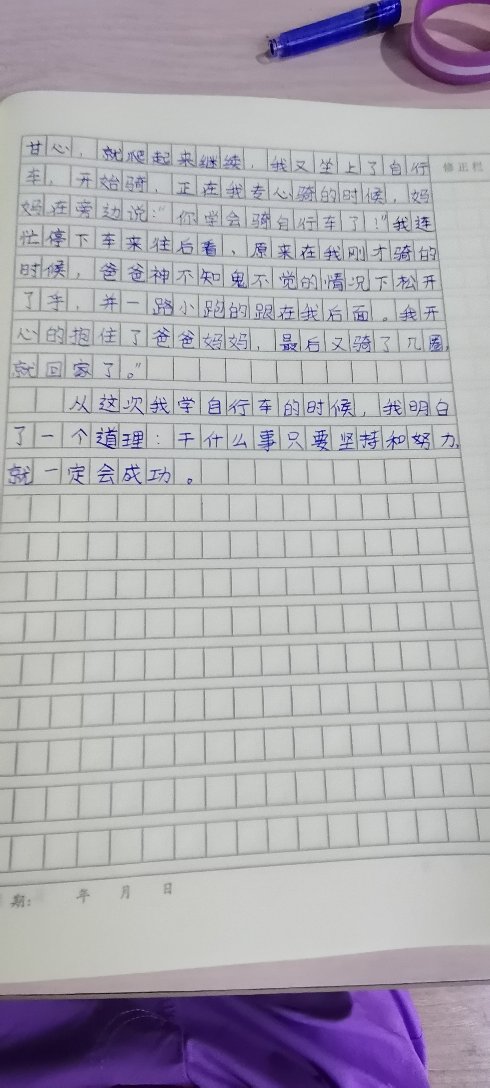 甘心，就爬起来继续，我又坐上了自行
修正栏
车，开始骑，正在我专心骑的时候，妈
妈在旁边说：“你学会骑自行车了！”我连
忙停下车来往后看，原来在我刚才骑的
时候，爸爸神不知鬼不觉的情况下松开
了手，并一路小跑的跟在我后面。我开
心的抱住了爸爸妈妈，最后又骑了几圈，
就回家了。”
从这次我学自行车的时候，我明白
了一个道理：干什么事只要坚持和努力，
就一定会成功。
期： 年 月 日